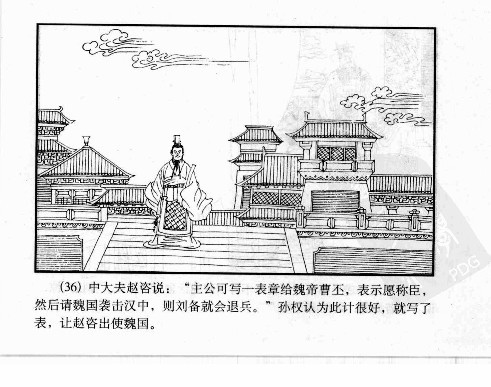 (36) 中大夫赵咨说：“主公可写一表章给魏帝曹丕，表示愿称臣，
然后请魏国袭击汉中，则刘备就会退兵。”孙权认为此计很好，就写了
表，让赵咨出使魏国。
PDG